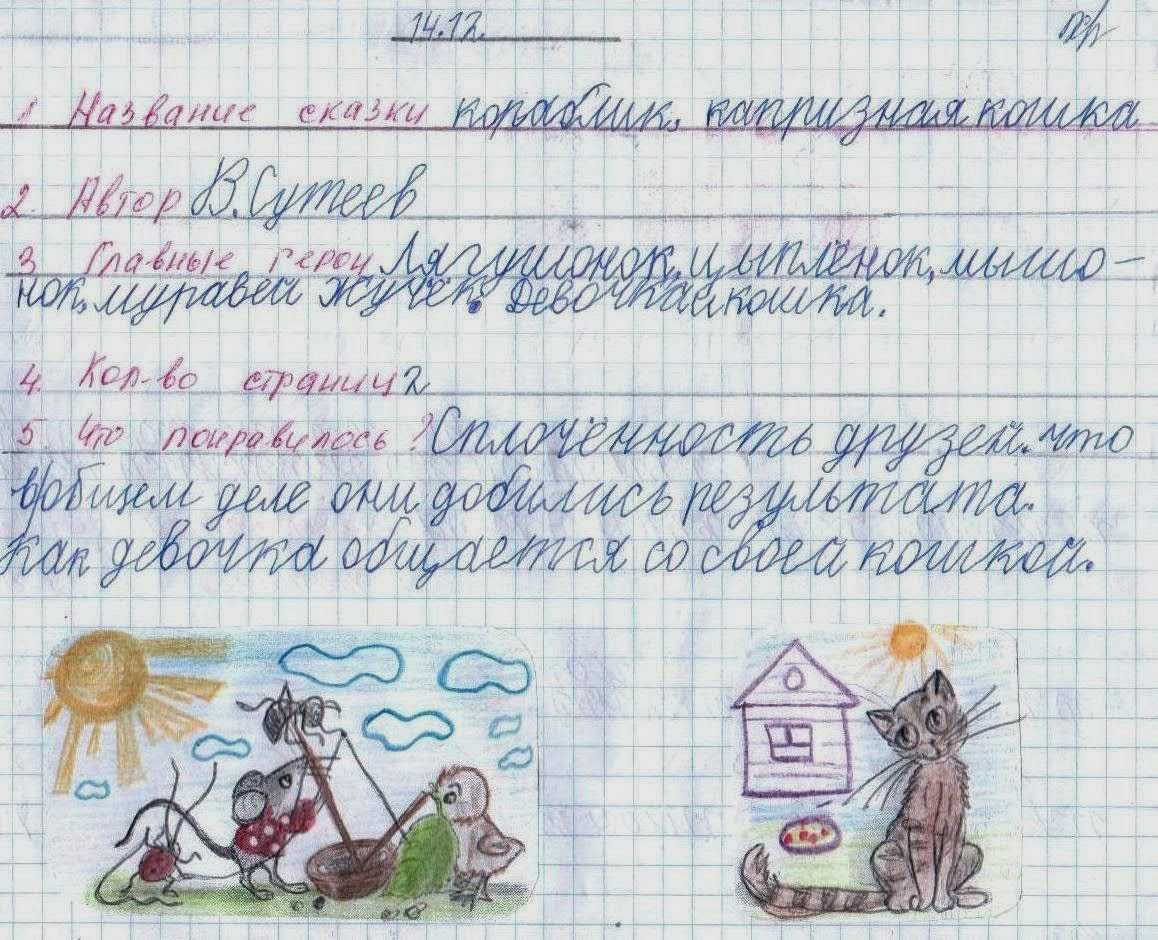 14.12.
1 Название сказки кораблик, капризная кошка
2. Автор В.Сутеев
3 Главные герои Лягушонок, цыплёнок, мышо-
нок, муравей жучёк. Девочка и кошка.
4. Кол-во страниц 2
5. Что понравилось? Сплочённость друзей. что
в общем деле они добились результата.
Как девочка общается со своей кошкой.